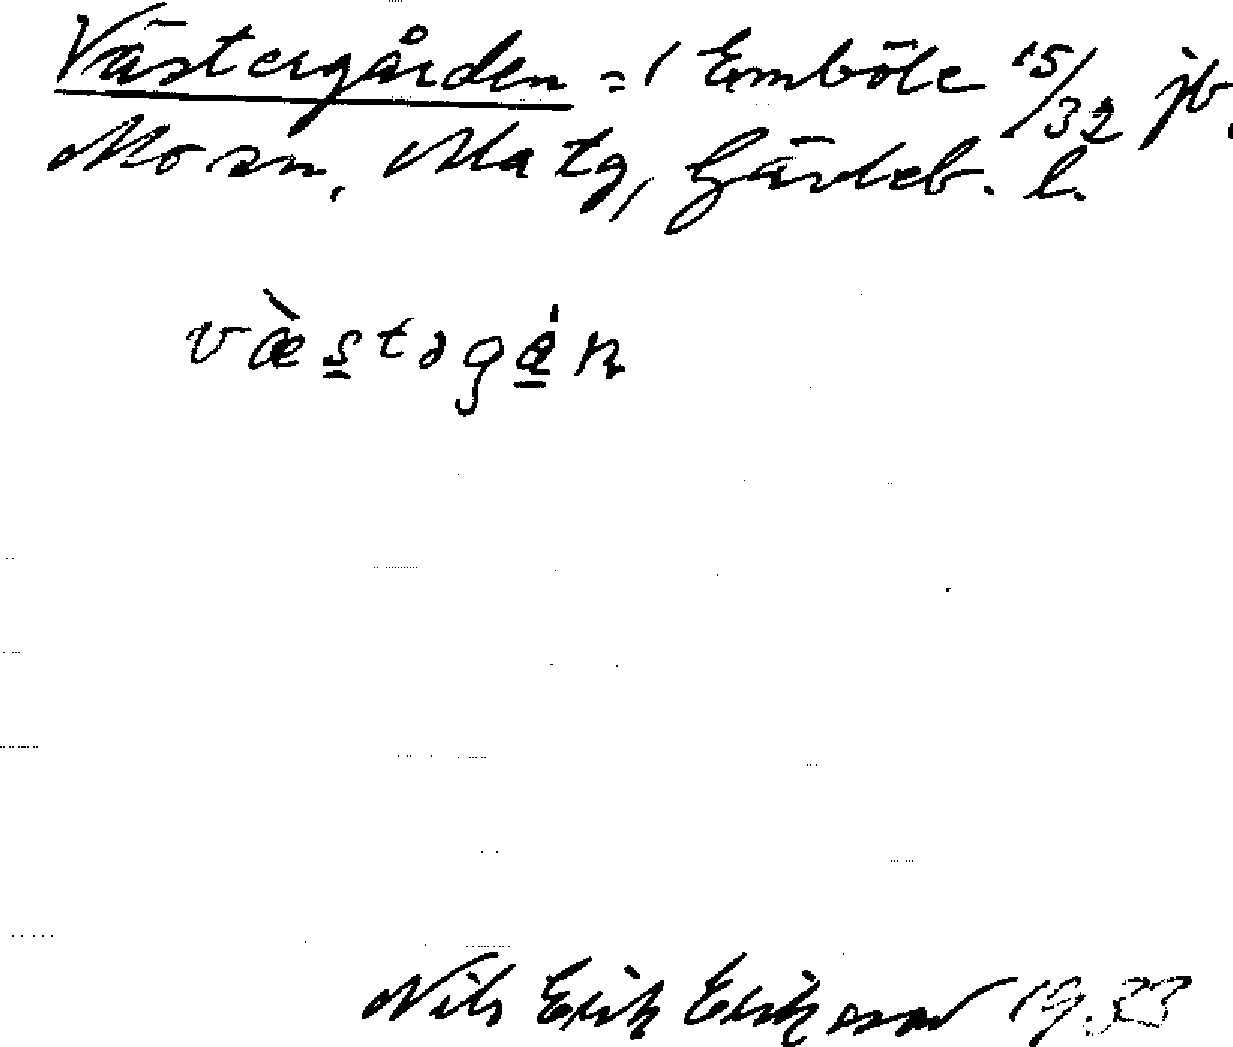 Västergården = 1 Emböle 15/32 jb.
Mo sn, Matg, Gävleb. l.
væ̀stəgá̱n
Nils Erik Eriksson 1933